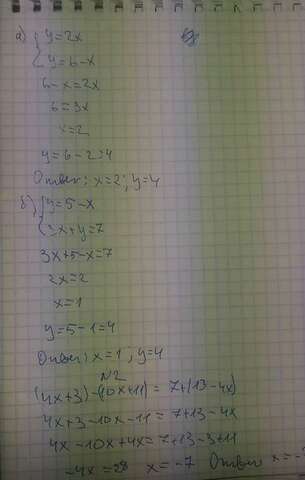 а) { y=2x
{ y=6-x
6-x=2x
6=3x
x=2
y=6-2=4
Ответ: x=2; y=4
б) { y=5-x
{ 3x+y=7
3x+5-x=7
2x=2
x=1
y=5-1=4
Ответ: x=1; y=4
N2
(4x+3)-(10x+11)=7+(13-4x)
4x+3-10x-11=7+13-4x
4x-10x+4x=7+13-3+11
-4x=28 x=-7 Ответ x=-